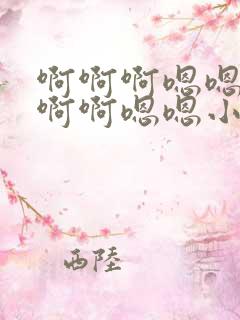 啊啊啊嗯嗯
啊啊嗯嗯小
西陸